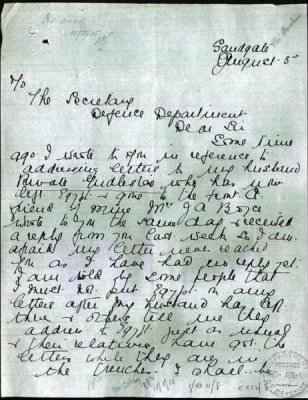 Sandgate
August 5th
To
The Secretary
Defence Department
Dear Sir
Some time
ago I wrote to you in reference to
addressing letters to my husband
Private who has now
left Egypt & gone to the front. A
friend of mine Mrs J A Boyce
wrote to you the same day & received
a reply from you last week so I am
afraid my letter never reached
you as I have had no reply yet.
I am told by some people that
I must not put Egypt on any
letters after my husband has left
there & others tell me they
address to Egypt just as usual
& their relatives have got the
letters while they are in
the trenches. I shall be